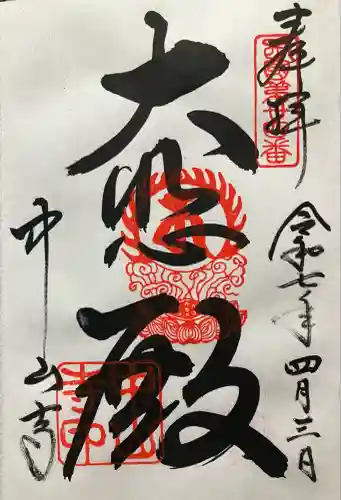 奉拝
令和七年四月三日
大悲殿
中山寺